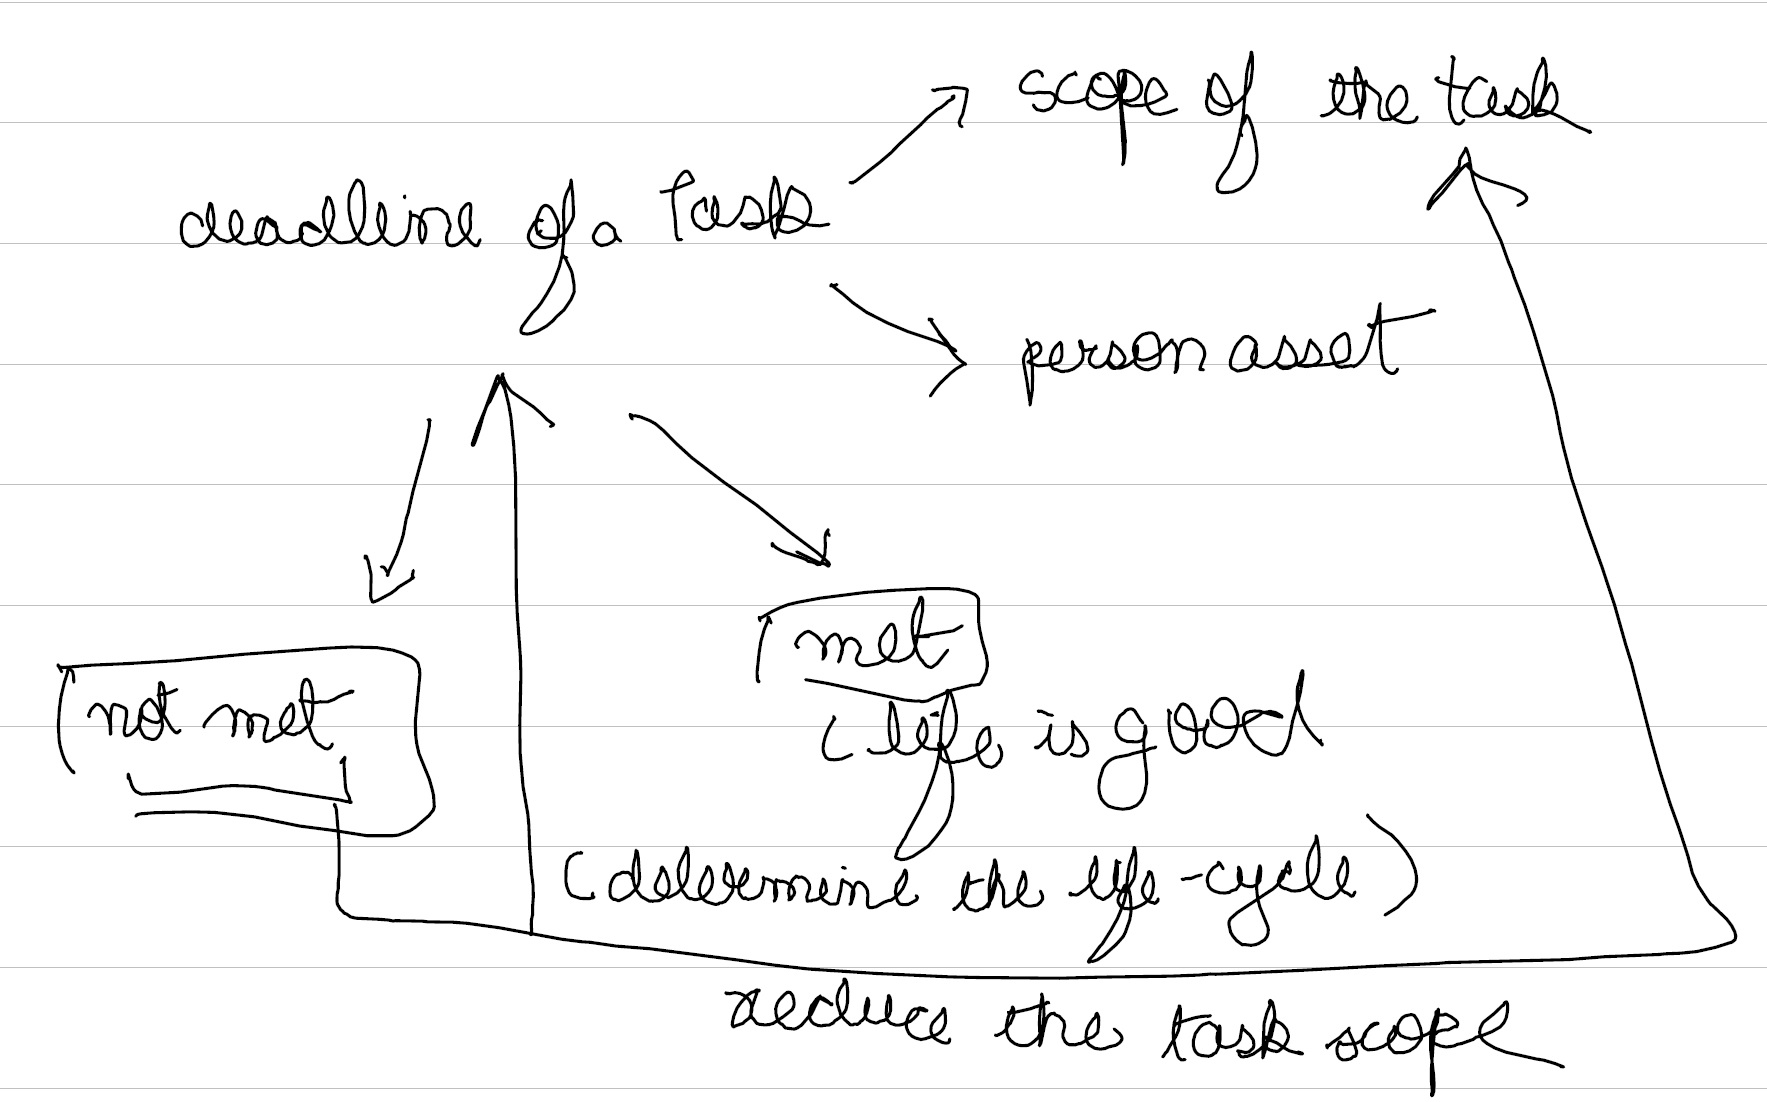 scope of the task
deadline of a task
person asset
met
not met
(life is good
(determine the life-cycle)
reduce the task scope